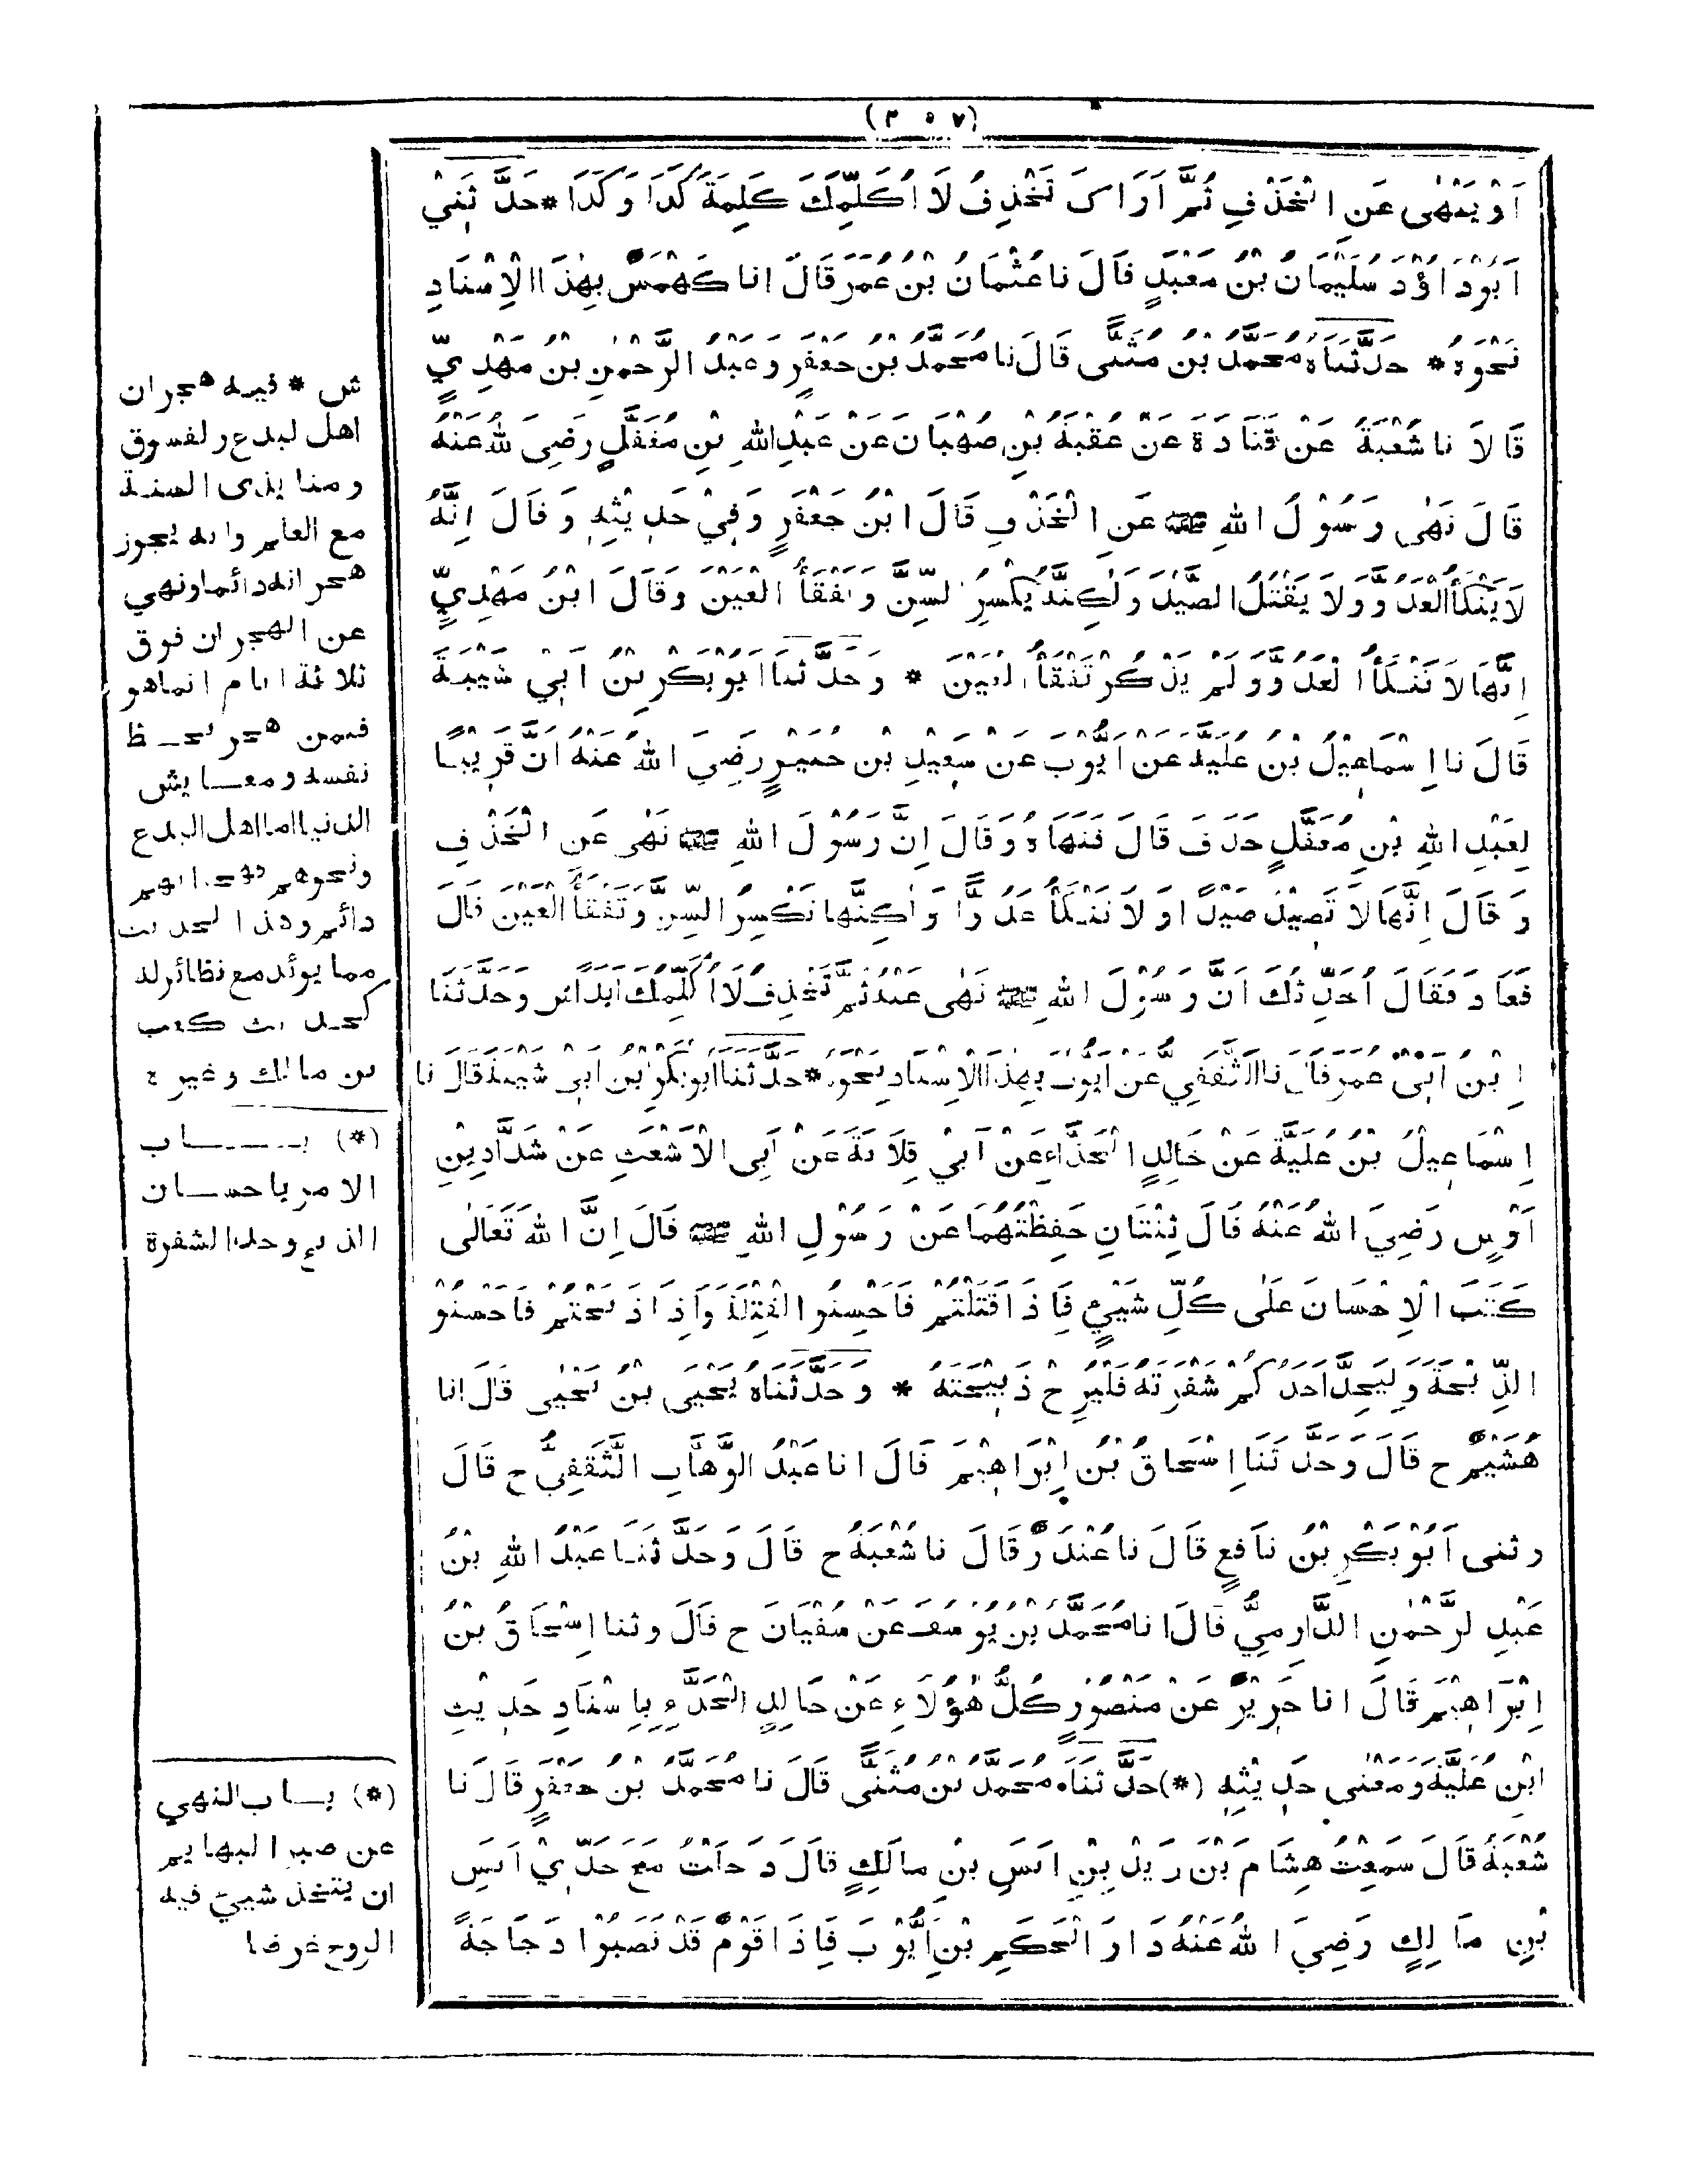 (٣٥٧)
اَوْ يَنْهٰى عَنِ الْخَذْفِ ثُمَّ اَرَاكَ تَخْذِفُ لَا اُكَلِّمُكَ كَلِمَةً كَذَا وَكَذَا * حَدَّ ثَنِيْ
اَبُوْدَاؤُدَ سُلَيْمَانُ بْنُ مَعْبَدٍ قَالَ نا عُثْمَانُ بْنُ عُمَرَ قَالَ انا كَهْمَسٌ بِهٰذَا الْاِسْنَادِ
نَحْوَهُ * حَدَّثَنَاهُ مُحَمَّدُ بْنُ مُثَنَّى قَالَ نا مُحَمَّدُ بْنُ جَعْفَرٍ وَعَبْدُ الرَّحْمٰنِ بْنُ مَهْدِيٍّ
قَالَا نا شُعْبَةُ عَنْ قَتَادَةَ عَنْ عُقْبَةَ بْنِ صُهْبَانَ عَنْ عَبْدِ اللهِ بْنِ مُغَفَّلٍ رَضِيَ اللهُ عَنْهُ
قَالَ نَهٰى رَسُوْلُ اللهِ ﷺ عَنِ الْخَذْفِ قَالَ ابْنُ جَعْفَرٍ وَفِيْ حَدِيْثِهِ وَقَالَ اِنَّهُ
لَا يَنْكَأُ الْعَدُوَّ وَلَا يَقْتُلُ الصَّيْدَ وَلٰكِنَّهُ يَكْسِرُ السِّنَّ وَيَفْقَأُ الْعَيْنَ وَقَالَ ابْنُ مَهْدِيٍّ
اِنَّهَا لَا تَنْكَأُ الْعَدُوَّ وَلَمْ يَذْكُرْ تَفْقَأُ الْعَيْنَ * وَحَدَّثَنَا اَبُوْ بَكْرِ بْنُ اَبِيْ شَيْبَةَ
قَالَ نا اِسْمَاعِيْلُ بْنُ عُلَيَّةَ عَنْ اَيُّوْبَ عَنْ سَعِيْدِ بْنِ جُبَيْرٍ رَضِيَ اللهُ عَنْهُ اَنَّ قَرِيْبًا
لِعَبْدِ اللهِ بْنِ مُغَفَّلٍ خَذَفَ قَالَ فَنَهَاهُ وَقَالَ اِنَّ رَسُوْلَ اللهِ ﷺ نَهٰى عَنِ الْخَذْفِ
وَقَالَ اِنَّهَا لَا تَصِيْدُ صَيْدًا وَلَا تَنْكَأُ عَدُوًّا وَلٰكِنَّهَا تَكْسِرُ السِّنَّ وَتَفْقَأُ الْعَيْنَ قَالَ
فَعَادَ فَقَالَ اُحَدِّثُكَ اَنَّ رَسُوْلَ اللهِ ﷺ نَهٰى عَنْهُ ثُمَّ تَخْذِفُ لَا اُكَلِّمُكَ اَبَدًا * وَحَدَّثَنَا
ابْنُ اَبِيْ عُمَرَ قَالَ نا الثَّقَفِيُّ عَنْ اَيُّوْبَ بِهٰذَا الْاِسْنَادِ نَحْوَهُ * حَدَّثَنَا اَبُوْبَكْرِ بْنُ اَبِيْ شَيْبَةَ قَالَ نا
اِسْمَاعِيْلُ بْنُ عُلَيَّةَ عَنْ خَالِدٍ الْحَذَّاءِ عَنْ اَبِيْ قِلَابَةَ عَنْ اَبِى الْاَشْعَثِ عَنْ شَدَّادِ بْنِ
اَوْسٍ رَضِيَ اللهُ عَنْهُ قَالَ ثِنْتَانِ حَفِظْتُهُمَا عَنْ رَسُوْلِ اللهِ ﷺ قَالَ اِنَّ اللهَ تَعَالٰى
كَتَبَ الْاِحْسَانَ عَلٰى كُلِّ شَيْئٍ فَاِذَا قَتَلْتُمْ فَاَحْسِنُوا الْقِتْلَةَ وَاِذَا ذَبَحْتُمْ فَاَحْسِنُوْ
الذِّبْحَةَ وَلْيُحِدَّ اَحَدُكُمْ شَفْرَتَهُ فَلْيُرِحْ ذَبِيْحَتَهُ * وَحَدَّثَنَاهُ يَحْيَى بْنُ يَحْيٰى قَالَ انا
هُشَيْمٌ ح قَالَ وَحَدَّثَنَا اِسْحَاقُ بْنُ اِبْرَاهِيْمَ قَالَ انا عَبْدُ الْوَهَّابِ الثَّقَفِيُّ ح قَالَ
وثنى اَبُوْ بَكْرِ بْنُ نَافِعٍ قَالَ نا غُنْدَرٌ قَالَ نا شُعْبَةُ ح قَالَ وَحَدَّثَنَا عَبْدُ اللهِ بْنُ
عَبْدِ الرَّحْمٰنِ الدَّارِمِيُّ قَالَ انا مُحَمَّدُ بْنُ يُوْسُفَ عَنْ سُفْيَانَ ح قَالَ وثنا اِسْحَاقُ بْنُ
اِبْرَاهِيْمَ قَالَ انا جَرِيْرٌ عَنْ مَنْصُوْرٍ كُلُّ هٰؤُلَاءِ عَنْ خَالِدٍ الْحَذَّاءِ بِاِسْنَادِ حَدِيْثِ
ابْنِ عُلَيَّةَ وَمَعْنٰى حَدِيْثِهِ (*) حَدَّثَنَا مُحَمَّدُ بْنُ مُثَنَّى قَالَ نا مُحَمَّدُ بْنُ جَعْفَرٍ قَالَ نا
شُعْبَةُ قَالَ سَمِعْتُ هِشَامَ بْنَ زَيْدِ بْنِ اَنَسِ بْنِ مَالِكٍ قَالَ دَخَلْتُ مَعَ جَدِّيْ اَنَسِ
بْنِ مَالِكٍ رَضِيَ اللهُ عَنْهُ دَارَ الْحَكَمِ بْنِ اَيُّوْبَ فَاِذَا قَوْمٌ قَدْ نَصَبُوْا دَجَاجَةً
ش * فيه هجران
اهل البدع والفسوق
ومنابذى السنة
مع العلم وانه يجوز
هجرانه دائما ونهي
عن الهجران فوق
ثلاثة ايام انما هو
فيمن هجر لحظ
نفسه ومعايش
الدنيا اما اهل البدع
ونحوهم فهجرانهم
دائم وهذا الحديث
مما يؤيد مع نظائر له
كحديث كعب
بن مالك وغيره
(*) بــاب
الامر باحسان
الذبح وحد الشفرة
(*) بــاب النهي
عن صبر البهايم
ان يتخذ شيئ فيه
الروح غرضا